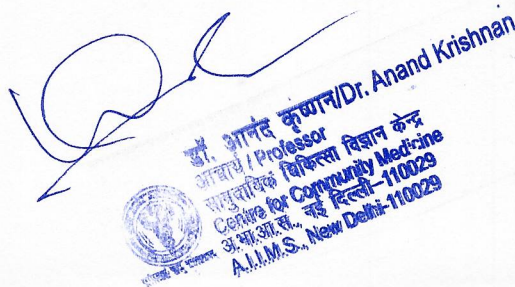 डॉ. आनंद कृष्णन/Dr. Anand Krishnan
आचार्य / Professor
सामुदायिक चिकित्सा विज्ञान केन्द्र
Centre for Community Medicine
अ.भा.आ.सं., नई दिल्ली-110029
A.I.I.M.S., New Delhi-110029